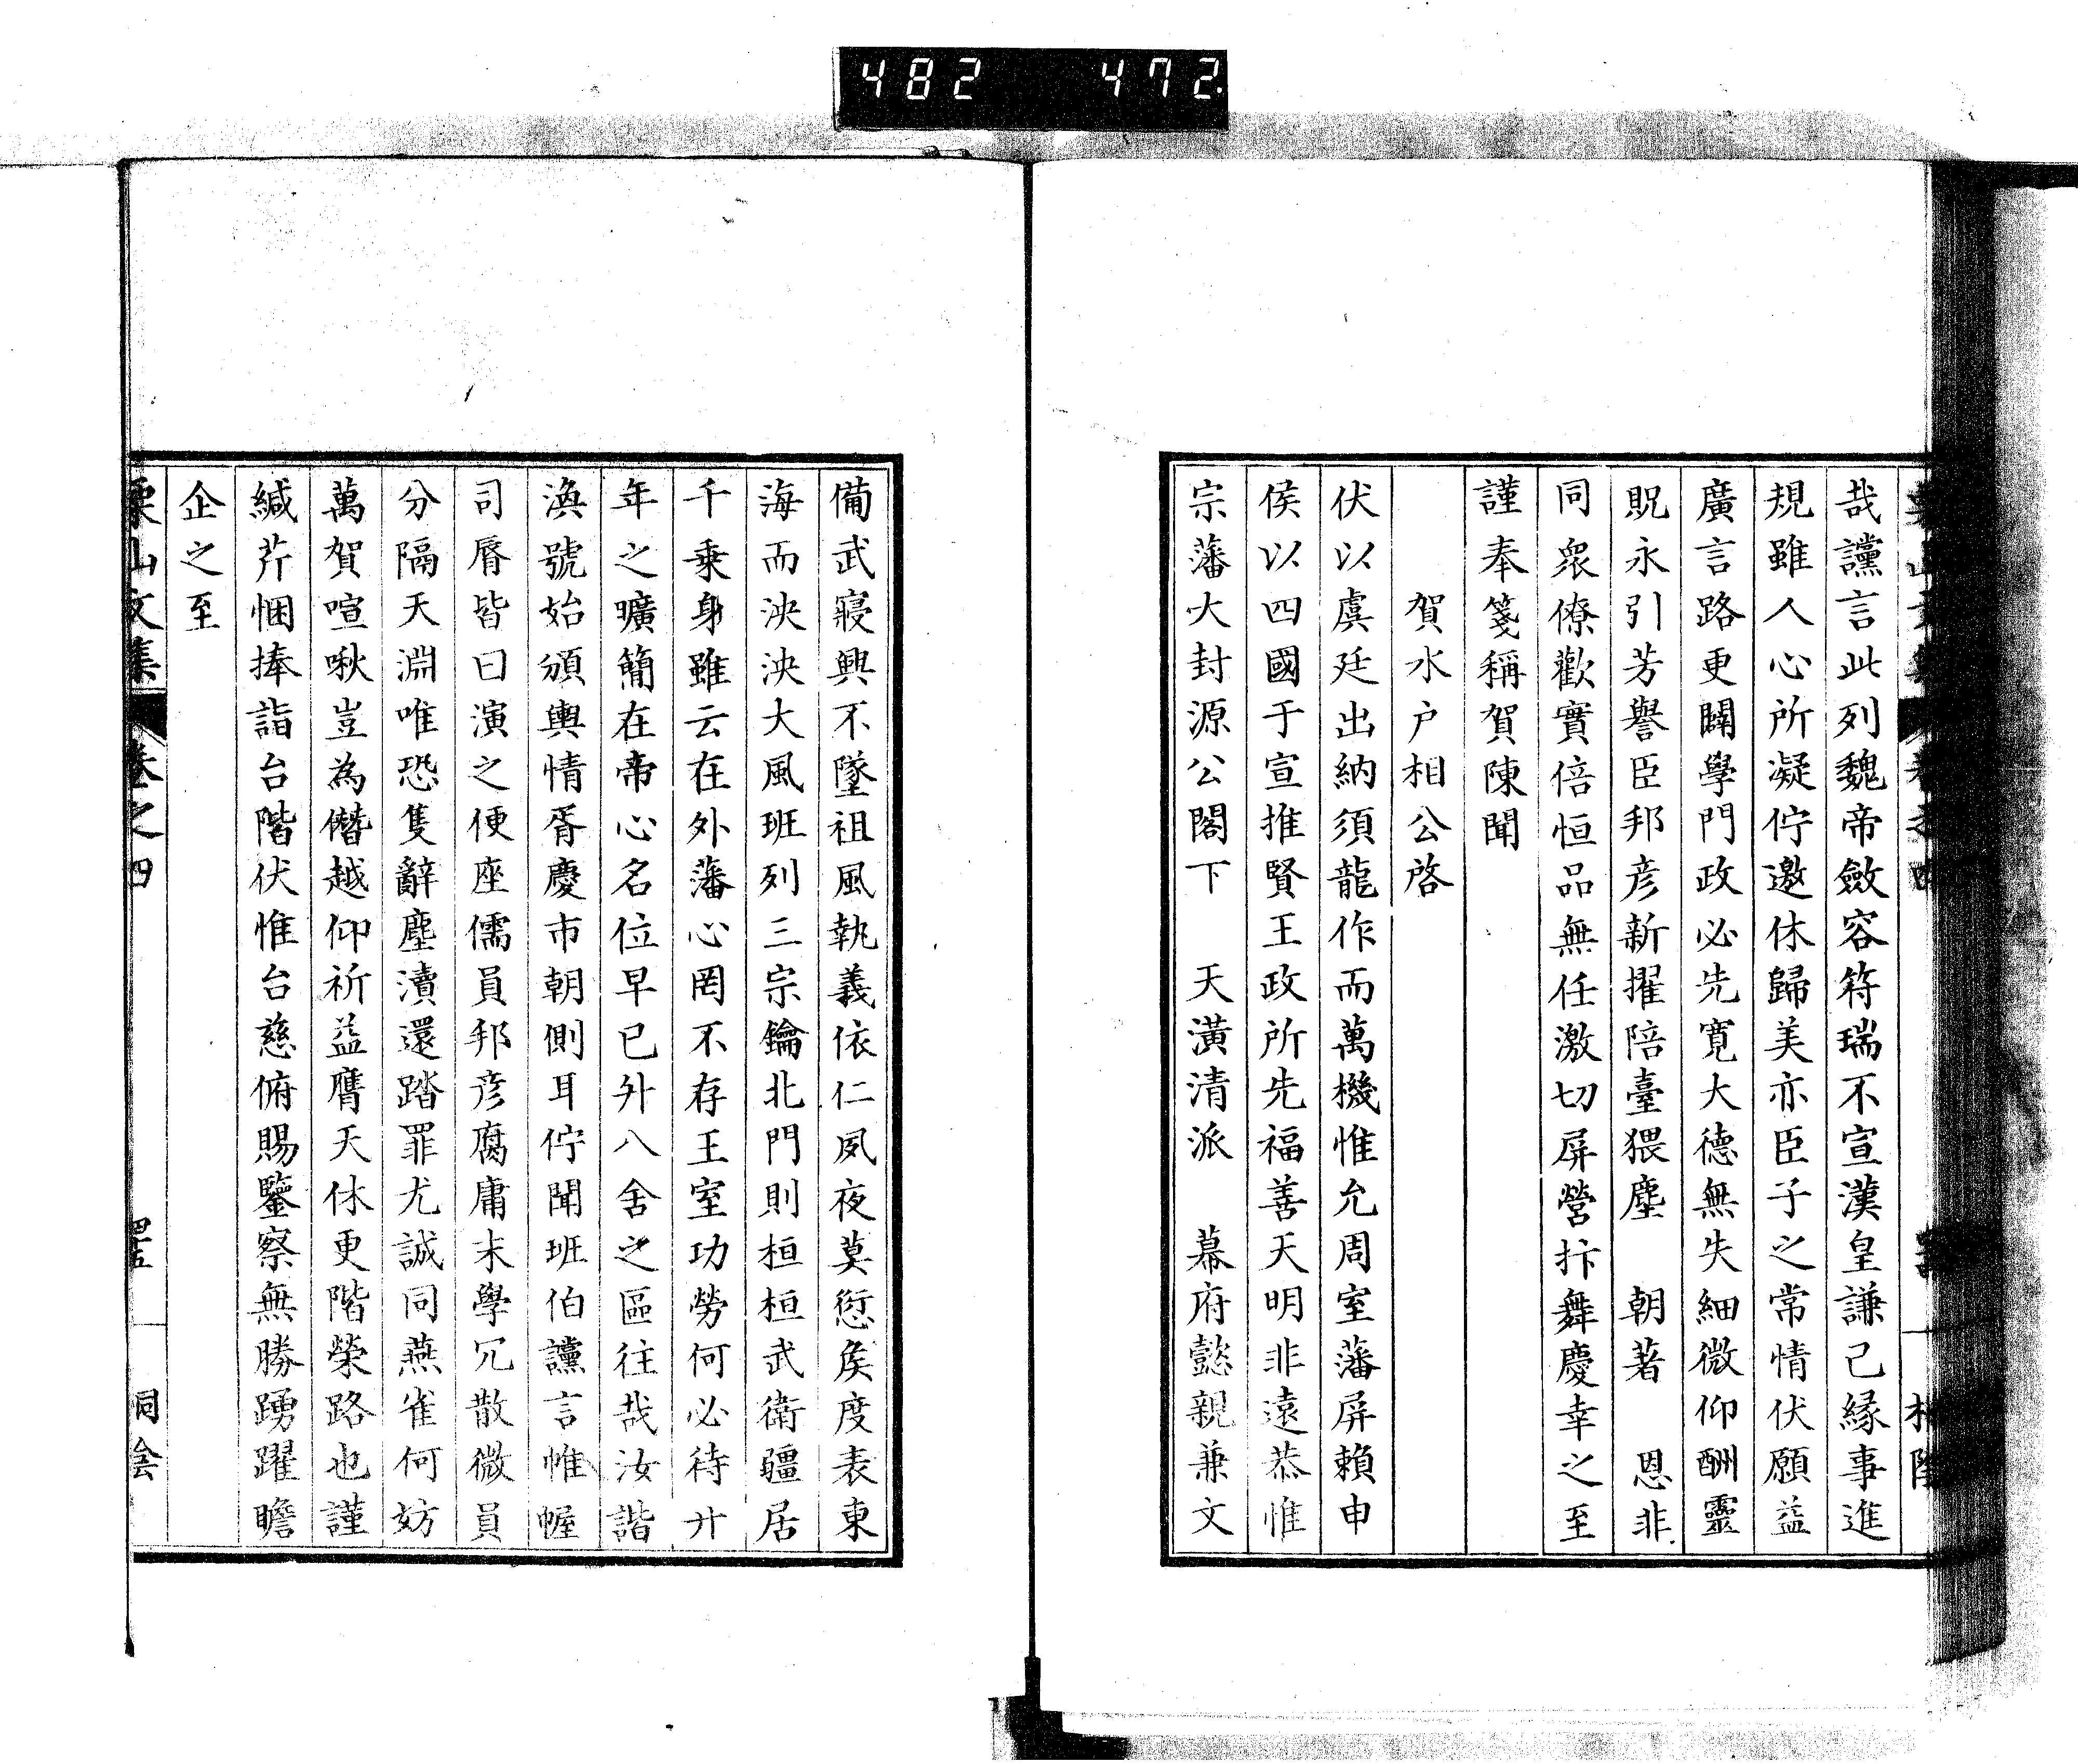 482 472.
哉讜言此列魏帝斂容符瑞不宣漢皇謙己緣事進
規雖人心所凝佇邀休歸美亦臣子之常情伏願益
廣言路更闢學門政必先寛大德無失細微仰酬靈
貺永引芳譽臣邦彦新擢陪臺猥塵 朝著 恩非
同衆僚歡實倍恒品無任激切屏營抃舞慶幸之至
謹奉箋稱賀陳聞
賀水户相公啓
伏以虞廷出納須龍作而萬機惟允周室藩屏賴申
侯以四國于宣推賢王政所先福善天明非遠恭惟
宗藩大封源公閣下 天潢清派 幕府懿親兼文
備武寢興不墜祖風執義依仁夙夜莫愆矦度表東
海而泱泱大風班列三宗鑰北門則桓桓武衛疆居
千乗身雖云在外藩心罔不存王室功勞何必待廾
年之曠簡在帝心名位早已升八舍之區往哉汝諧
渙號始頒輿情胥慶市朝側耳佇聞班伯讜言帷幄
司脣皆曰演之便座儒員邦彦腐庸末學冗散微員
分隔天淵唯恐隻辭塵瀆還踏罪尤誠同燕雀何妨
萬賀喧啾豈為僭越仰祈益膺天休更階榮路也謹
緘芹悃捧詣台階伏惟台慈俯賜鑒察無勝踴躍瞻
企之至
栗山文集 卷之四